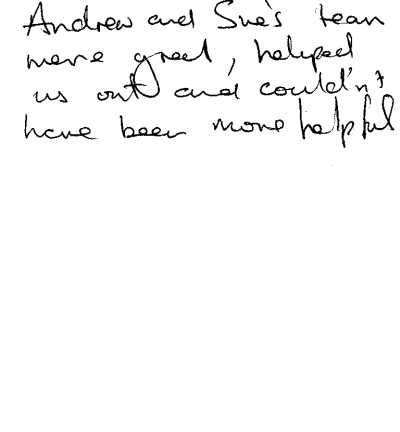 Andrew and Sue's team
were great, helped
us out and could'n't
have been more helpful